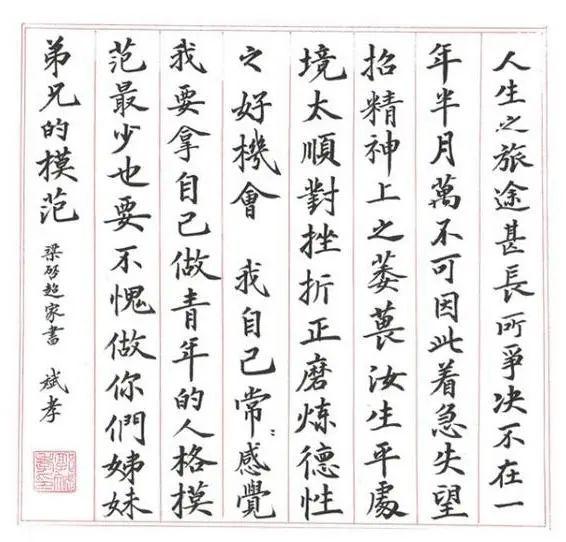 人生之旅途甚長所爭决不在一
年半月萬不可因此着急失望
招精神上之萎萇汝生平處
境太順對挫折正磨煉德性
之好機會 我自己常〻感覺
我要拿自己做青年的人格模
范最少也要不愧做你們姊妹
弟兄的模范 梁启超家書 斌孝